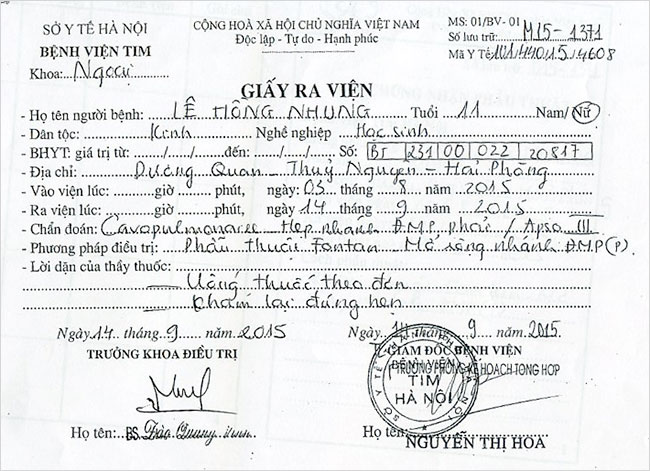 SỞ Y TẾ HÀ NỘI
BỆNH VIỆN TIM
Khoa: Ngoại
CỘNG HOÀ XÃ HỘI CHỦ NGHĨA VIỆT NAM
Độc lập - Tự do - Hạnh phúc
MS: 01/BV - 01
Số lưu trữ: M15-1371
Mã Y Tế 101.44015.4608
GIẤY RA VIỆN
- Họ tên người bệnh: LÊ HỒNG NHUNG Tuổi 11 Nam/ Nữ
- Dân tộc: Kinh Nghề nghiệp Học sinh
- BHYT: giá trị từ:..../..../.... đến:..../..../.... Số: BT 231 00 022 20817
- Địa chỉ: Dương Quan - Thuỷ Nguyên - Hải Phòng
- Vào viện lúc: giờ phút, ngày: 03 tháng 8 năm 2015
- Ra viện lúc: giờ phút, ngày: 14 tháng 9 năm 2015
- Chẩn đoán: Cavopulmonaree - Hẹp nhánh ĐMP phải / Apso III
- Phương pháp điều trị: Phẫu thuật Fontan - Mở rộng nhánh ĐMP (P)
- Lời dặn của thầy thuốc:
- Uống thuốc theo đơn
- Khám lại đúng hẹn
Ngày 14 tháng 9 năm 2015
TRƯỞNG KHOA ĐIỀU TRỊ
Họ tên: BS. Đào Quang
Ngày 14 tháng 9 năm 2015
GIÁM ĐỐC BỆNH VIỆN
TRƯỞNG PHÒNG KẾ HOẠCH TỔNG HỢP
BỆNH VIỆN
TIM
HÀ NỘI
Họ tên:
NGUYỄN THỊ HOA